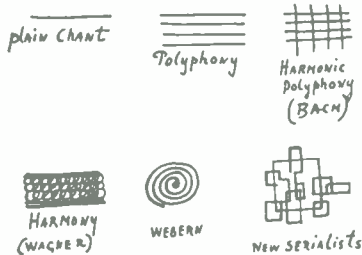 plain Chant
Polyphony
HARMONIC
Polyphony
(BACH)
HARMONY
(WAGNER)
WEBERN
NEW SERIALISTS